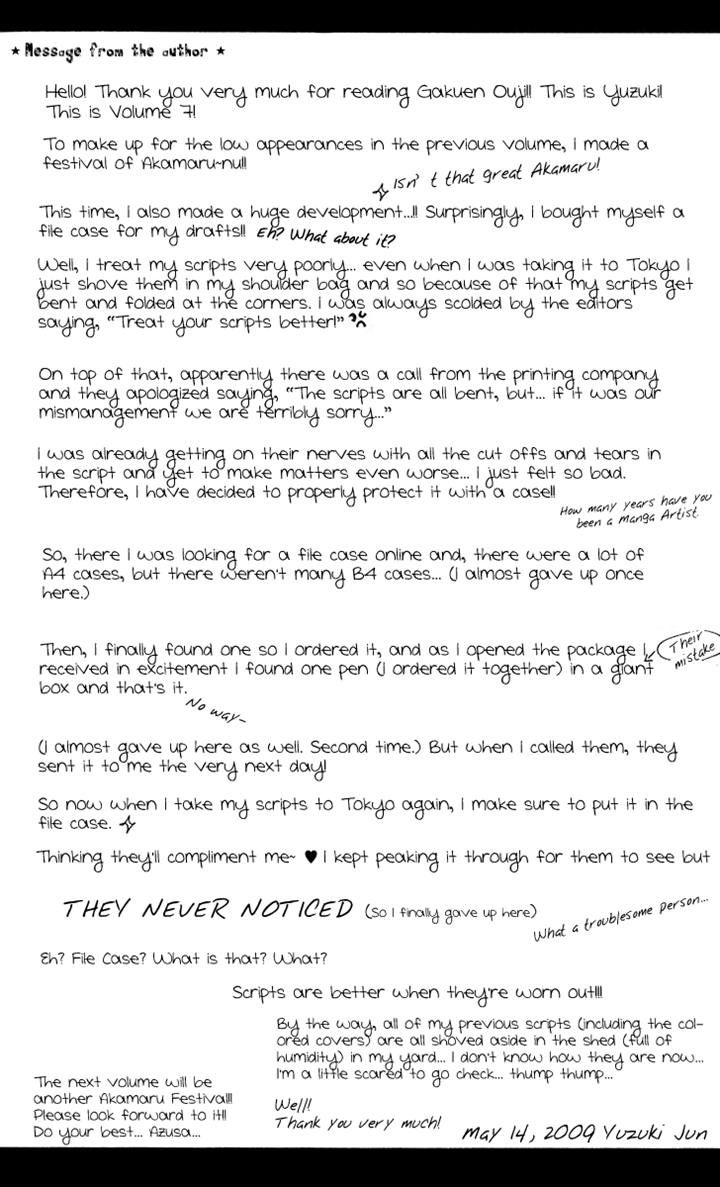 ★ Message from the author ★
Hello! Thank you very much for reading Gakuen Ouji!! This is Yuzuki!
This is Volume 7!
To make up for the low appearances in the previous volume, I made a
festival of Akamaru~nu!!
Isn't that great Akamaru!
This time, I also made a huge development...!! Surprisingly, I bought myself a
file case for my drafts!! Eh? What about it?
Well, I treat my scripts very poorly... even when I was taking it to Tokyo I
just shove them in my shoulder bag and so because of that my scripts get
bent and folded at the corners. I was always scolded by the editors
saying, "Treat your scripts better!"
On top of that, apparently there was a call from the printing company
and they apologized saying, "The scripts are all bent, but... if it was our
mismanagement we are terribly sorry..."
I was already getting on their nerves with all the cut offs and tears in
the script and yet to make matters even worse... I just felt so bad.
Therefore, I have decided to properly protect it with a case!!
How many years have you
been a Manga Artist.
So, there I was looking for a file case online and, there were a lot of
A4 cases, but there weren't many B4 cases... (I almost gave up once
here.)
Then, I finally found one so I ordered it, and as I opened the package I
received in excitement I found one pen (I ordered it together) in a giant
box and that's it.
Their
mistake
No way~
(I almost gave up here as well. Second time.) But when I called them, they
sent it to me the very next day!
So now when I take my scripts to Tokyo again, I make sure to put it in the
file case.
Thinking they'll compliment me~ ♥ I kept peaking it through for them to see but
THEY NEVER NOTICED (So I finally gave up here)
What a troublesome person...
Eh? File Case? What is that? What?
Scripts are better when they're worn out!!!
By the way, all of my previous scripts (including the col-
ored covers) are all shoved aside in the shed (full of
humidity) in my yard... I don't know how they are now...
I'm a little scared to go check... thump thump...
The next volume will be
another Akamaru Festival!!
Please look forward to it!!
Do your best... Azusa...
Well!
Thank you very much!
May 14, 2009 Yuzuki Jun